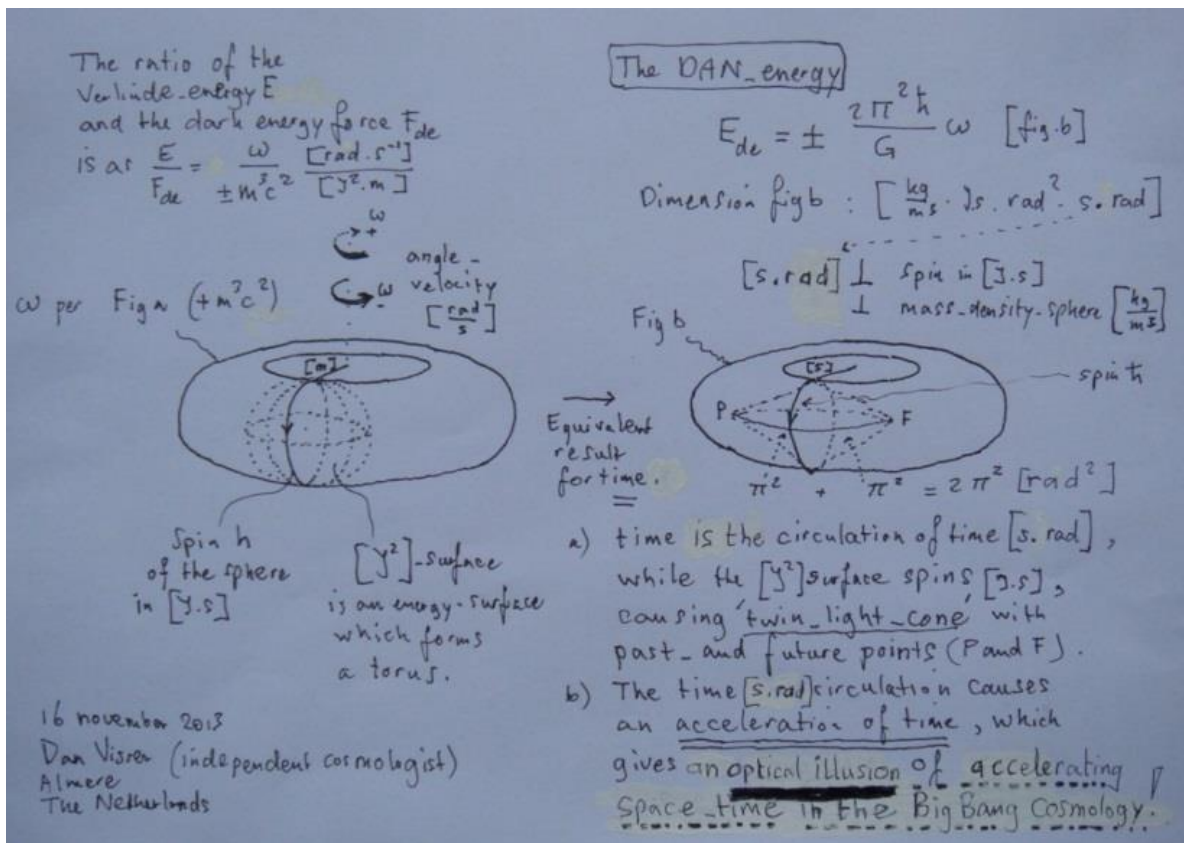 The ratio of the
Verlinde_energy E
and the dark energy force F_de
is as E/F_de = ω/±m³c² [rad.s⁻¹]/[J².m]
ω +
ω -
angle-
velocity
[rad/s]
ω per Fig a (+m³c²)
[m]
Spin h
of the sphere
in [J.s]
[J²]-surface
is an energy-surface
which forms
a torus.
16 november 2013
Dan Visser (independent cosmologist)
Almere
The Netherlands
→
Equivalent
result
for time.
The DAN_energy
E_de = ± 2π²ħ/G ω [fig.b]
Dimension fig b : [kg/m³ . Js . rad² . s . rad]
[s.rad] ⊥ spin in [J.s]
⊥ mass_density_sphere [kg/m³]
Fig b
[s]
spin ħ
P
F
π² + π² = 2π² [rad²]
a) time is the circulation of time [s.rad],
while the [J²]surface spins [J.s],
causing 'twin_light_cone' with
past_and future points (P and F).
b) The time [s.rad] circulation causes
an acceleration of time, which
gives an optical illusion of accelerating
space_time in the Big Bang Cosmology!